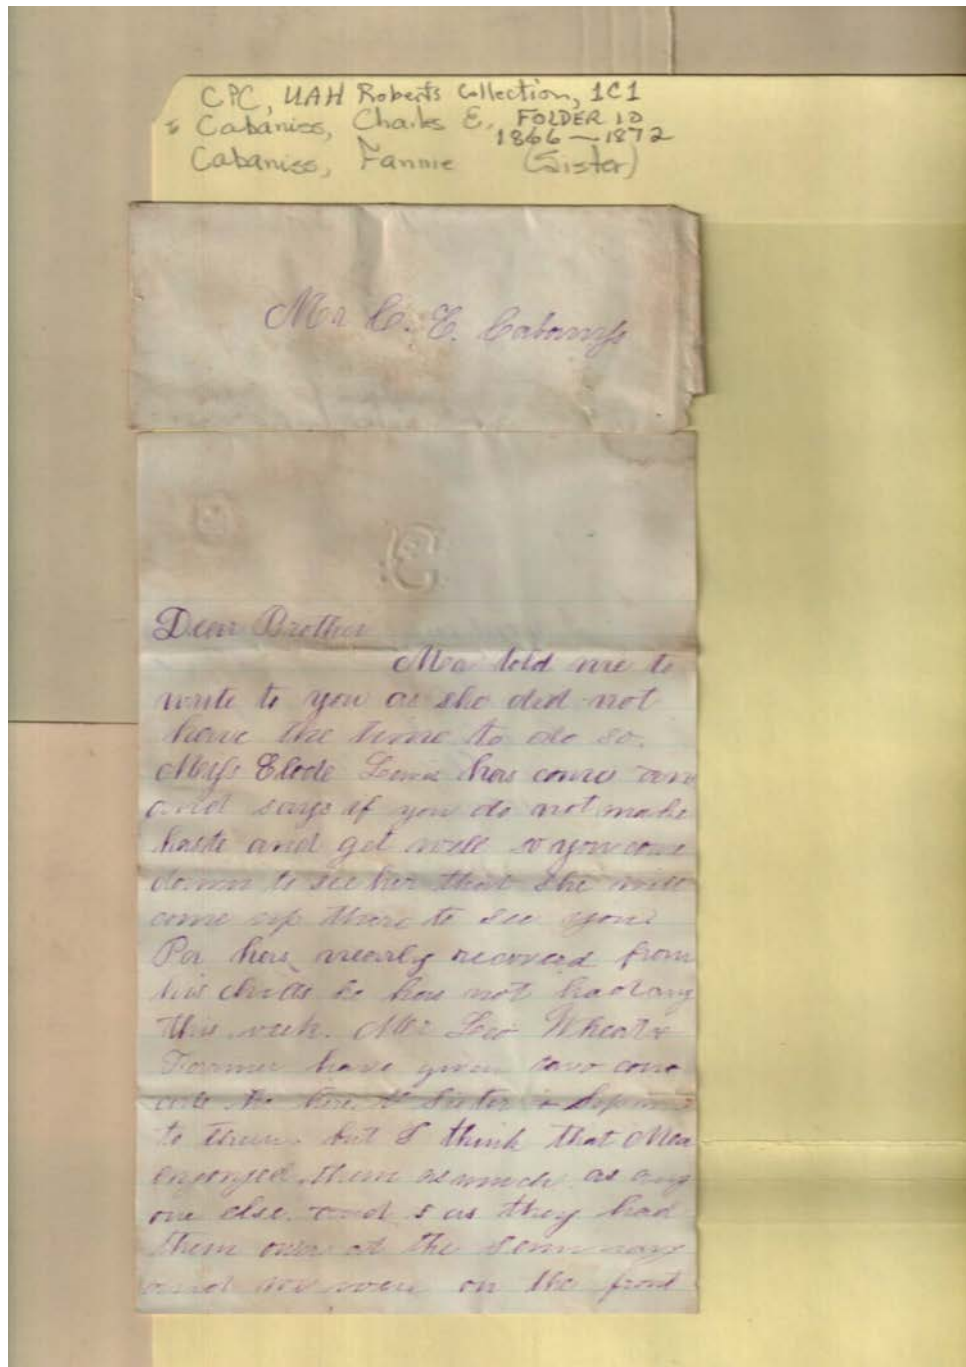 CPC, UAH Roberts Collection, 1C1
Cabaniss, Charles E. FOLDER 10
1866-1872
Cabaniss, Fannie (Sister)
Mr C. E. Cabanyss
C
Dear Brother
Ma told me to
write to you as she did not
have the time to do so.
Miss Elode Lewis has come
and says if you do not make
haste and get well so you come
down to see her that she will
come up there to see you.
Pa has nearly recovered from
his chills he has not had any
this week. Mr Leo Wheat &
have given two
here Sister &
to them but I think that Ma
enjoyed them as much as any
one else and as they had
them over at the Seminary
and were on the front